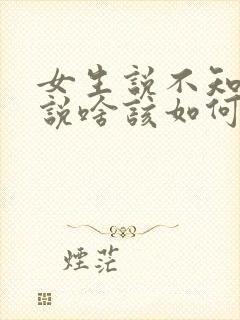 女生説不知
説啥該如何
煙茫